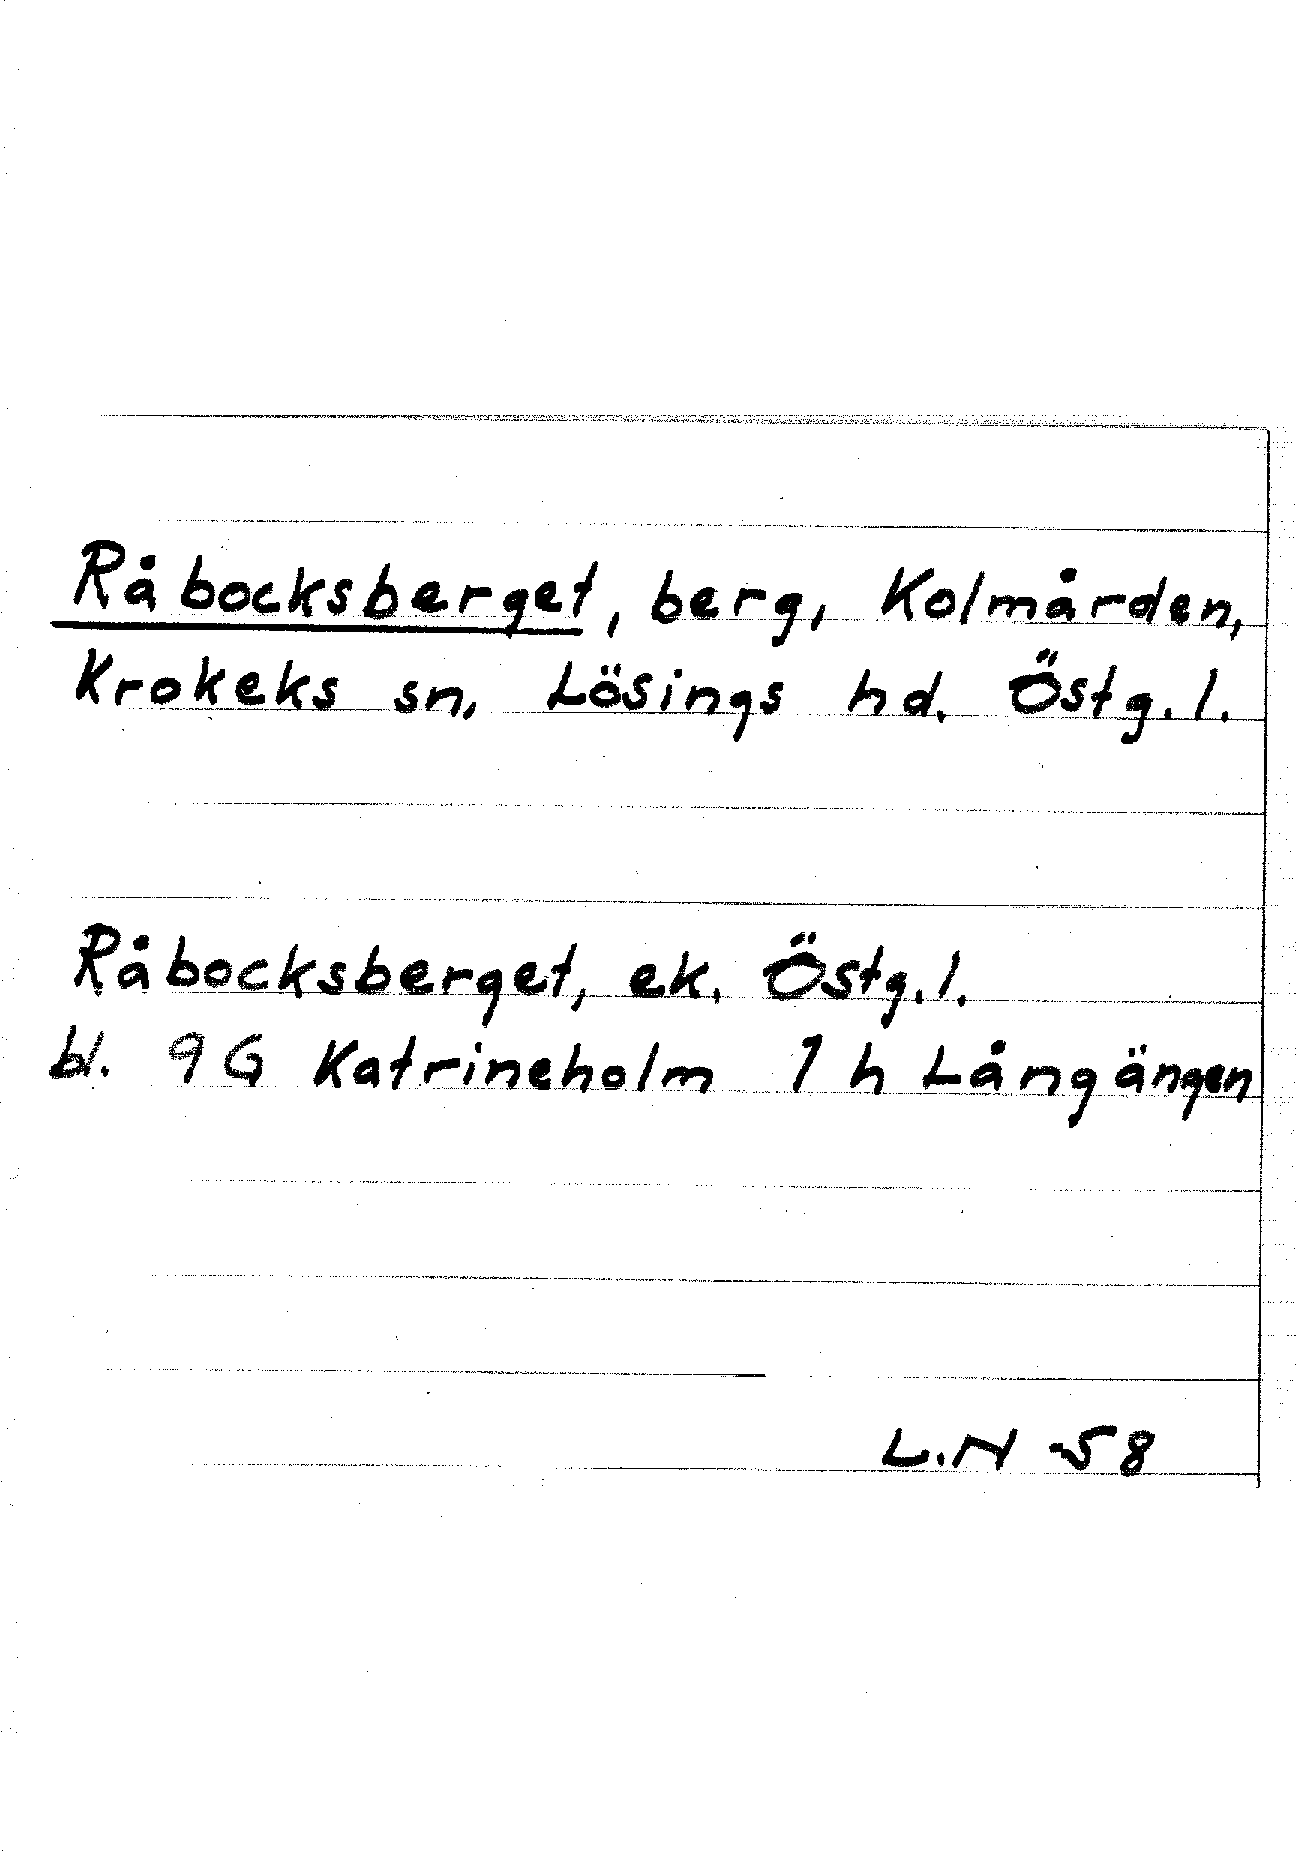 Råbocksberget, berg, Kolmården,
Krokeks sn, Lösings hd. Östg.l.
Råbocksberget, ek. Östg.l.
bl. 9G Katrineholm 1 h Långängen
L.N -58